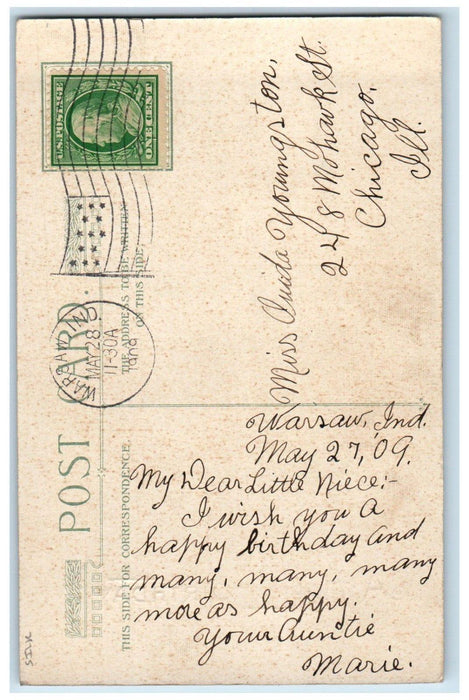 U.S. POSTAGE
ONE CENT
WARSAW, IND.
MAY 28
11-30A
1909
POST CARD.
THE ADDRESS TO BE WRITTEN
ON THIS SIDE.
THIS SIDE FOR CORRESPONDENCE.
Miss Youngston,
248 Mohawk St.
Chicago.
Ill.
Warsaw, Ind.
May 27, '09.
My Dear Little Niece:-
I wish you a
happy birthday and
many, many, many
more as happy.
Your Auntie
Marie.